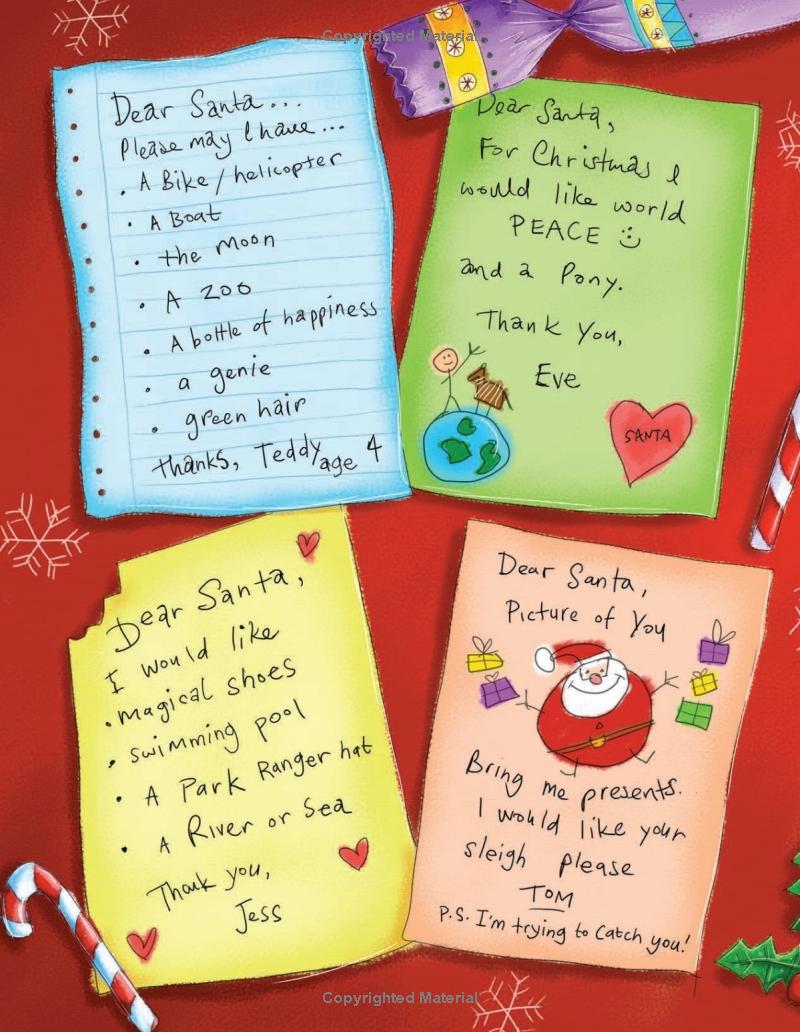 Copyrighted Material
Dear Santa...
Please may I have...
. A Bike / helicopter
. A Boat
. the moon
. A zoo
. A bottle of happiness
. a genie
. green hair
thanks, Teddy age 4
Dear Santa,
For Christmas I
would like world
PEACE
and a Pony.
Thank You,
Eve
SANTA
Dear Santa,
I would like
. magical shoes
. swimming pool
. A Park Ranger hat
. A River or Sea
Thank you,
Jess
Dear Santa,
Picture of You
Bring me presents.
I would like your
sleigh please
TOM
P.S. I'm trying to catch you!
Copyrighted Material